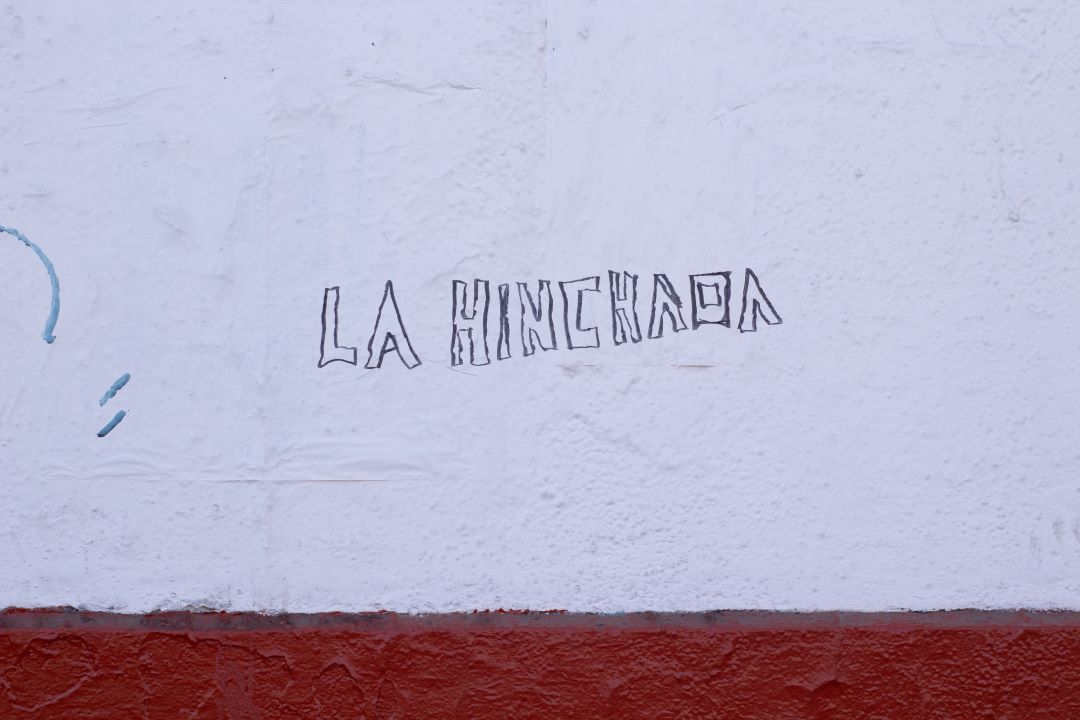 LA HINCHADA